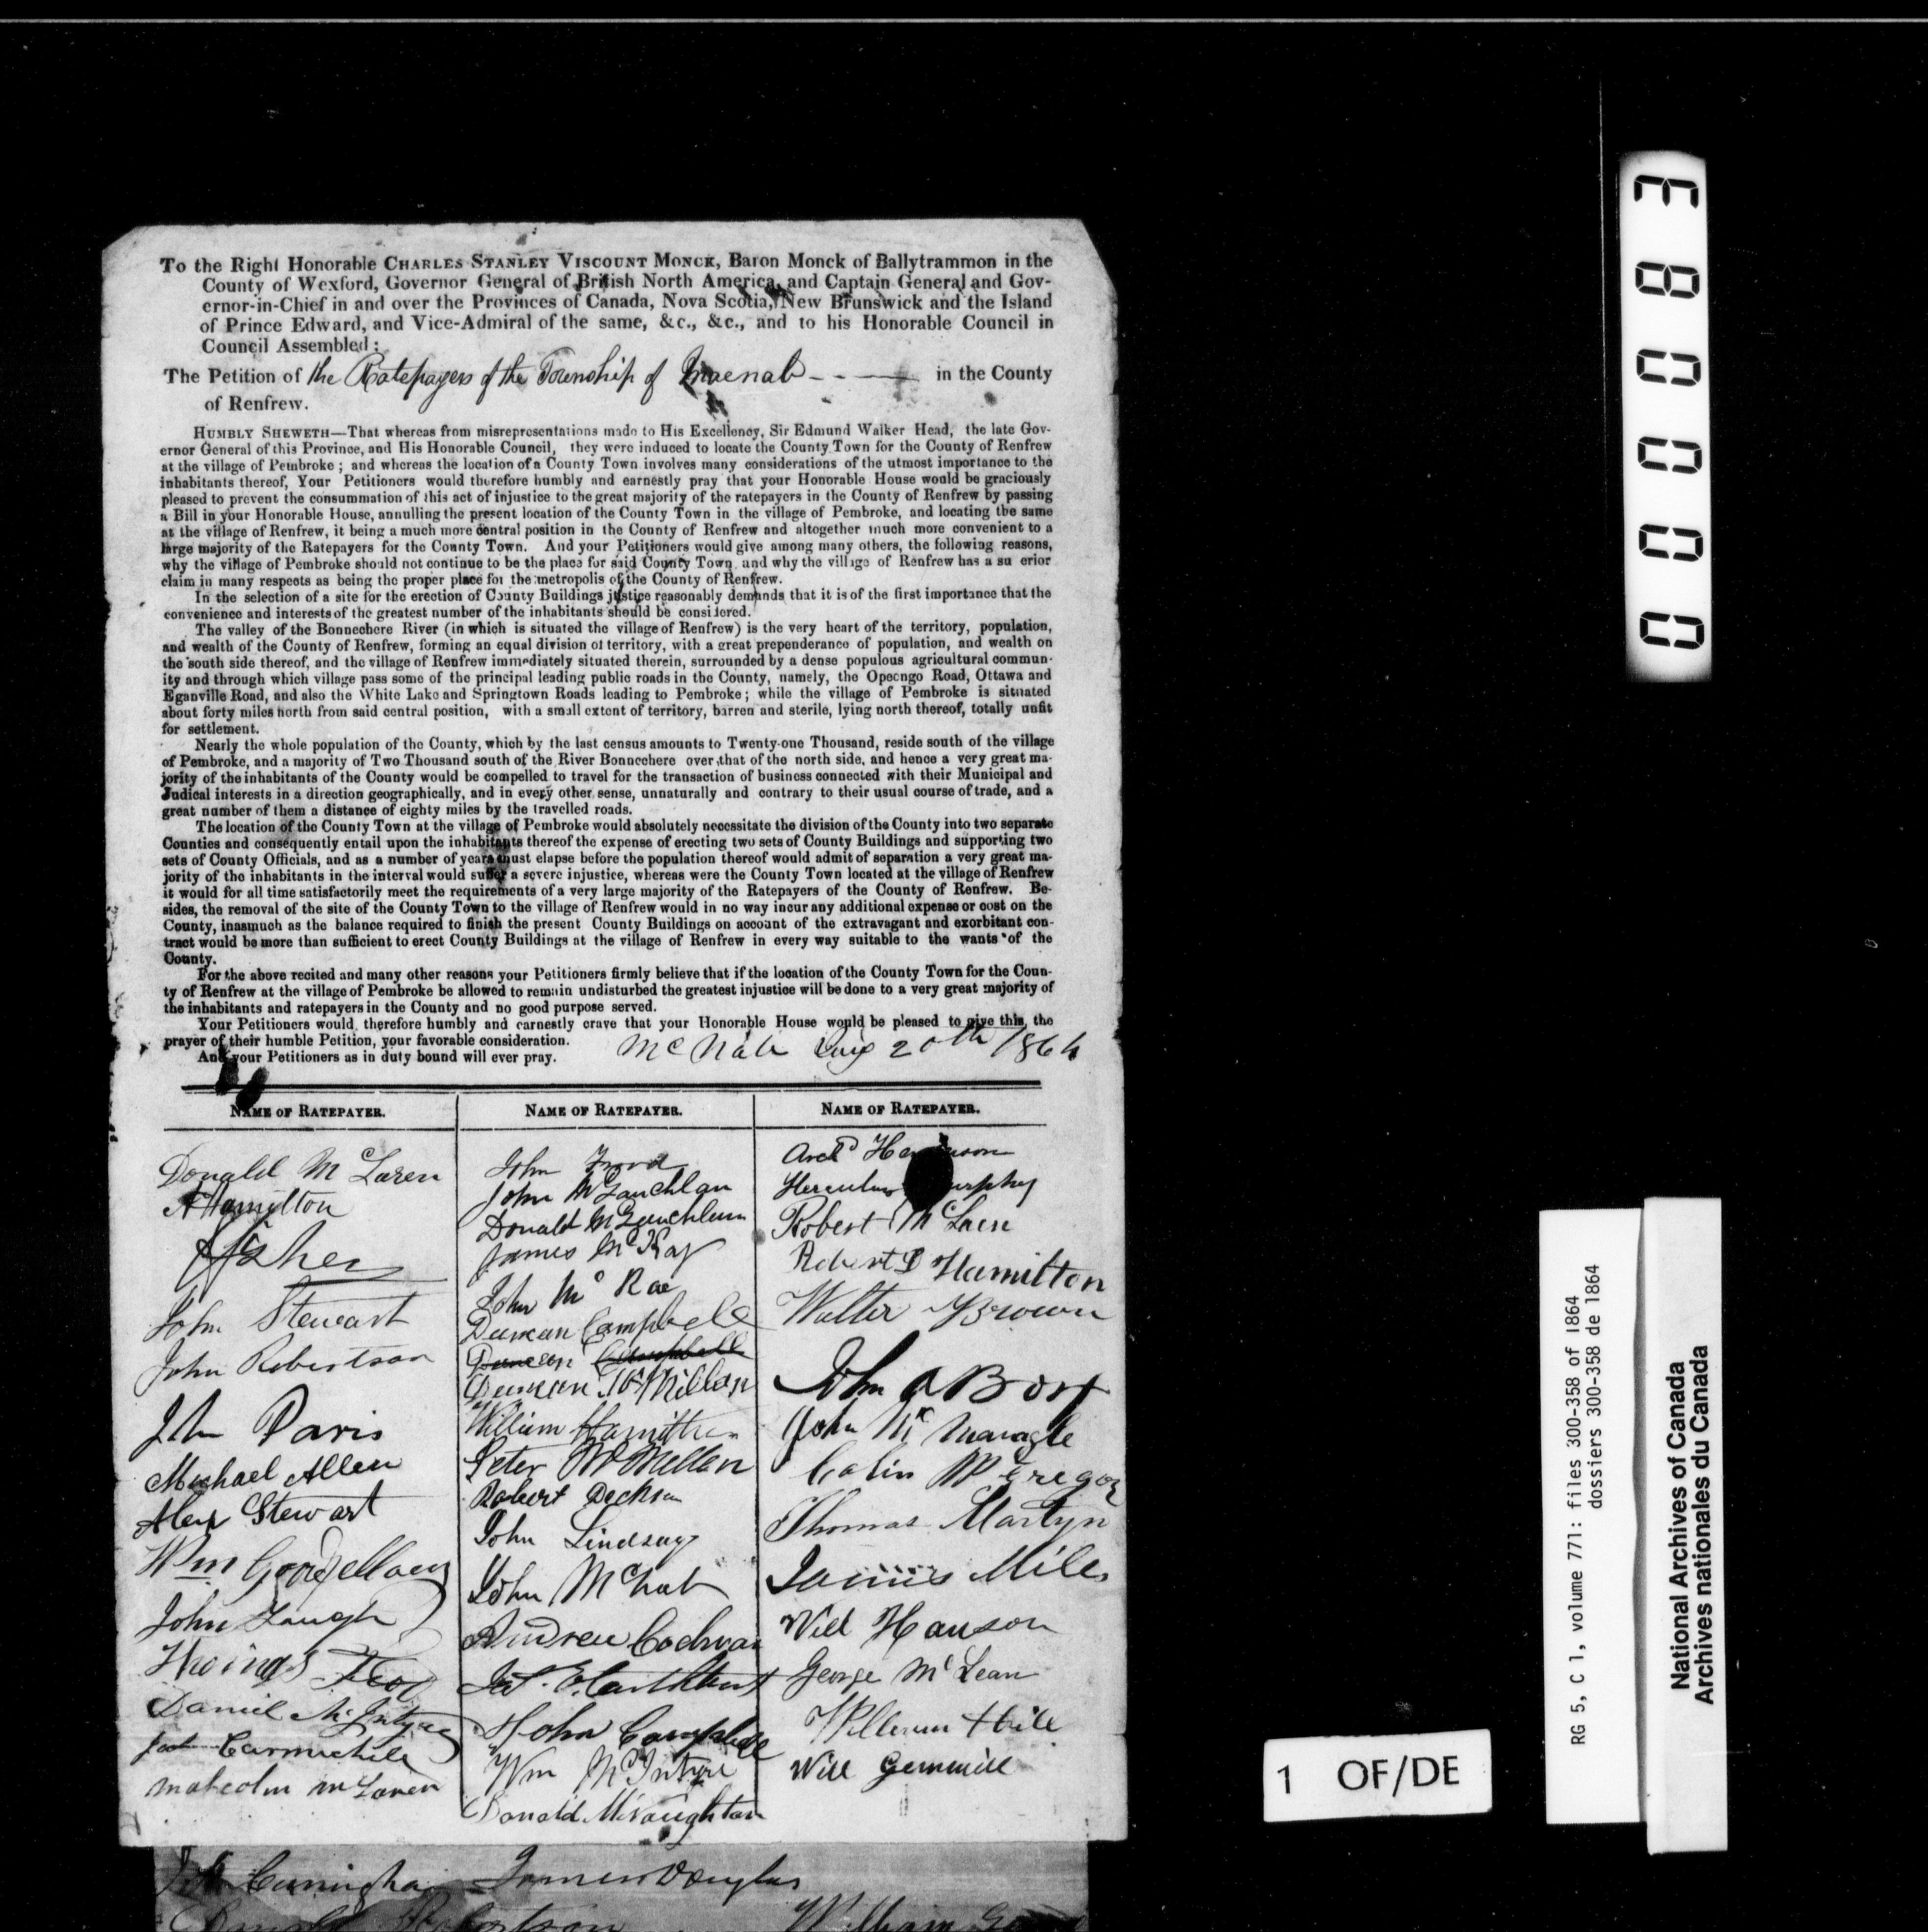 To the Right Honorable CHARLES STANLEY VISCOUNT MONCK, Baron Monck of Ballytrammon in the
County of Wexford, Governor General of British North America, and Captain General and Gov-
ernor-in-Chief in and over the Provinces of Canada, Nova Scotia, New Brunswick and the Island
of Prince Edward, and Vice-Admiral of the same, &c., &c., and to his Honorable Council in
Council Assembled:
The Petition of the Ratepayers of the Township of Macnab - - - in the County
of Renfrew.
HUMBLY SHEWETH—That whereas from misrepresentations made to His Excellency, Sir Edmund Walker Head, the late Gov-
ernor General of this Province, and His Honorable Council, they were induced to locate the County Town for the County of Renfrew
at the village of Pembroke; and whereas the location of a County Town involves many considerations of the utmost importance to the
inhabitants thereof, Your Petitioners would therefore humbly and earnestly pray that your Honorable House would be graciously
pleased to prevent the consummation of this act of injustice to the great majority of the ratepayers in the County of Renfrew by passing
a Bill in your Honorable House, annulling the present location of the County Town in the village of Pembroke, and locating the same
at the village of Renfrew, it being a much more central position in the County of Renfrew and altogether much more convenient to a
large majority of the Ratepayers for the County Town. And your Petitioners would give among many others, the following reasons,
why the village of Pembroke should not continue to be the place for said County Town and why the village of Renfrew has a su erior
claim in many respects as being the proper place for the metropolis of the County of Renfrew.
In the selection of a site for the erection of County Buildings justice reasonably demands that it is of the first importance that the
convenience and interests of the greatest number of the inhabitants should be considered.
The valley of the Bonnechere River (in which is situated the village of Renfrew) is the very heart of the territory, population,
and wealth of the County of Renfrew, forming an equal division of territory, with a great preponderance of population, and wealth on
the south side thereof, and the village of Renfrew immediately situated therein, surrounded by a dense populous agricultural commun-
ity and through which village pass some of the principal leading public roads in the County, namely, the Opeongo Road, Ottawa and
Eganville Road, and also the White Lake and Springtown Roads leading to Pembroke; while the village of Pembroke is situated
about forty miles north from said central position, with a small extent of territory, barren and sterile, lying north thereof, totally unfit
for settlement.
Nearly the whole population of the County, which by the last census amounts to Twenty-one Thousand, reside south of the village
of Pembroke, and a majority of Two Thousand south of the River Bonnechere over that of the north side, and hence a very great ma-
jority of the inhabitants of the County would be compelled to travel for the transaction of business connected with their Municipal and
Judical interests in a direction geographically, and in every other sense, unnaturally and contrary to their usual course of trade, and a
great number of them a distance of eighty miles by the travelled roads.
The location of the County Town at the village of Pembroke would absolutely necessitate the division of the County into two separate
Counties and consequently entail upon the inhabitants thereof the expense of erecting two sets of County Buildings and supporting two
sets of County Officials, and as a number of years must elapse before the population thereof would admit of separation a very great ma-
jority of the inhabitants in the interval would suffer a severe injustice, whereas were the County Town located at the village of Renfrew
it would for all time satisfactorily meet the requirements of a very large majority of the Ratepayers of the County of Renfrew. Be-
sides, the removal of the site of the County Town to the village of Renfrew would in no way incur any additional expense or cost on the
County, inasmuch as the balance required to finish the present County Buildings on account of the extravagant and exorbitant con-
tract would be more than sufficient to erect County Buildings at the village of Renfrew in every way suitable to the wants of the
County.
For the above recited and many other reasons your Petitioners firmly believe that if the location of the County Town for the Coun-
ty of Renfrew at the village of Pembroke be allowed to remain undisturbed the greatest injustice will be done to a very great majority of
the inhabitants and ratepayers in the County and no good purpose served.
Your Petitioners would therefore humbly and earnestly crave that your Honorable House would be pleased to give this, the
prayer of their humble Petition, your favorable consideration.
And your Petitioners as in duty bound will ever pray.
McNab 20th 1864
NAME OF RATEPAYER.
Donald McLaren
A Hamilton
John Stewart
John Robertson
Jhn Davis
Michael Allen
Alex Stewart
Wm Goodfellow
John
Thomas
Daniel McIntyre
Carmichile
malcolm mcLaren
NAME OF RATEPAYER.
John
John McLauchlan
Donald McLauchlan
James McKay
John McRae
Duncan Campbell
Duncan Campbell
Duncan McMillan
William Hamilton
Peter McMillan
Robert Dickson
John Lindsay
John McNab
Andrew Cochran
John Campbell
Wm McIntyre
Donald McNaughton
NAME OF RATEPAYER.
Archd
Robert McLaren
Robert Hamilton
Walter Brown
John
John Mc
Colin McGregor
Thomas Martyn
James Miles
Will Hanson
George McLean
William Hill
Will Gemmill
James Douglas
Robertson
William
000083
1 OF/DE
RG 5, C 1, volume 771: files 300-358 of 1864
dossiers 300-358 de 1864
National Archives of Canada
Archives nationales du Canada